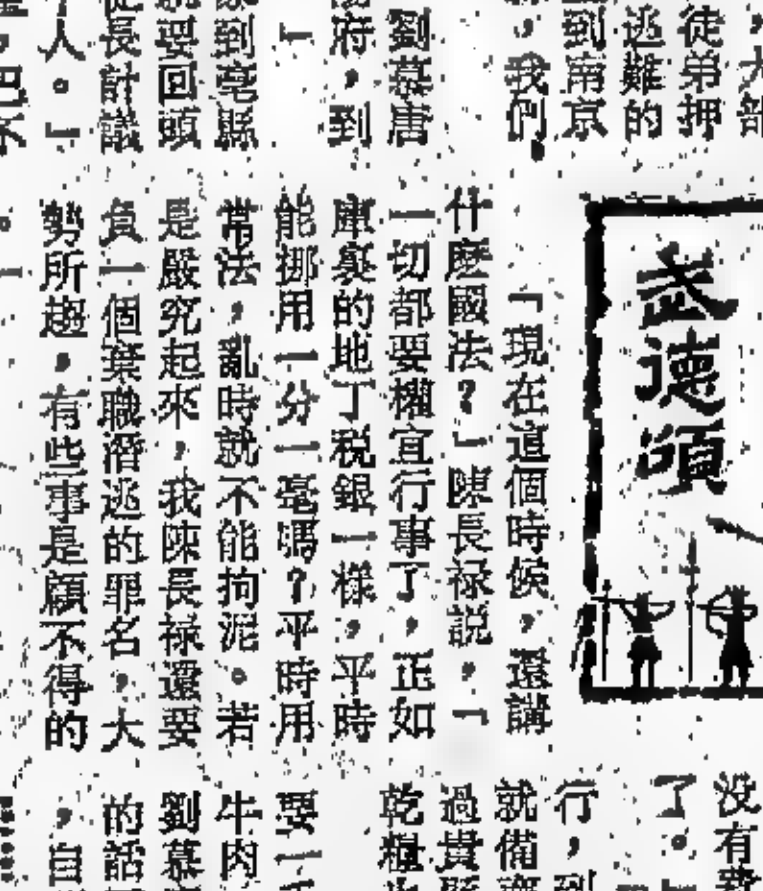 ，大部
徒弟押
逃難的
到南京
，我們
劉慕唐
府，到
」
到亳縣
要回頭
從長計議
人。」
武德頌
「現在這個時候，還講
什麽國法？」陳長祿説，「
一切都要權宜行事了，正如
庫裏的地丁税銀一樣，平時
能挪用一分一毫嗎？平時用
常法，亂時就不能拘泥。若
是嚴究起來，我陳長祿還要
負一個棄職潛逃的罪名，大
勢所趨，有些事是顧不得的
。
没有費
了。
行，到
就備
過貴縣
乾糧
要一
牛肉
劉慕
的話
，自